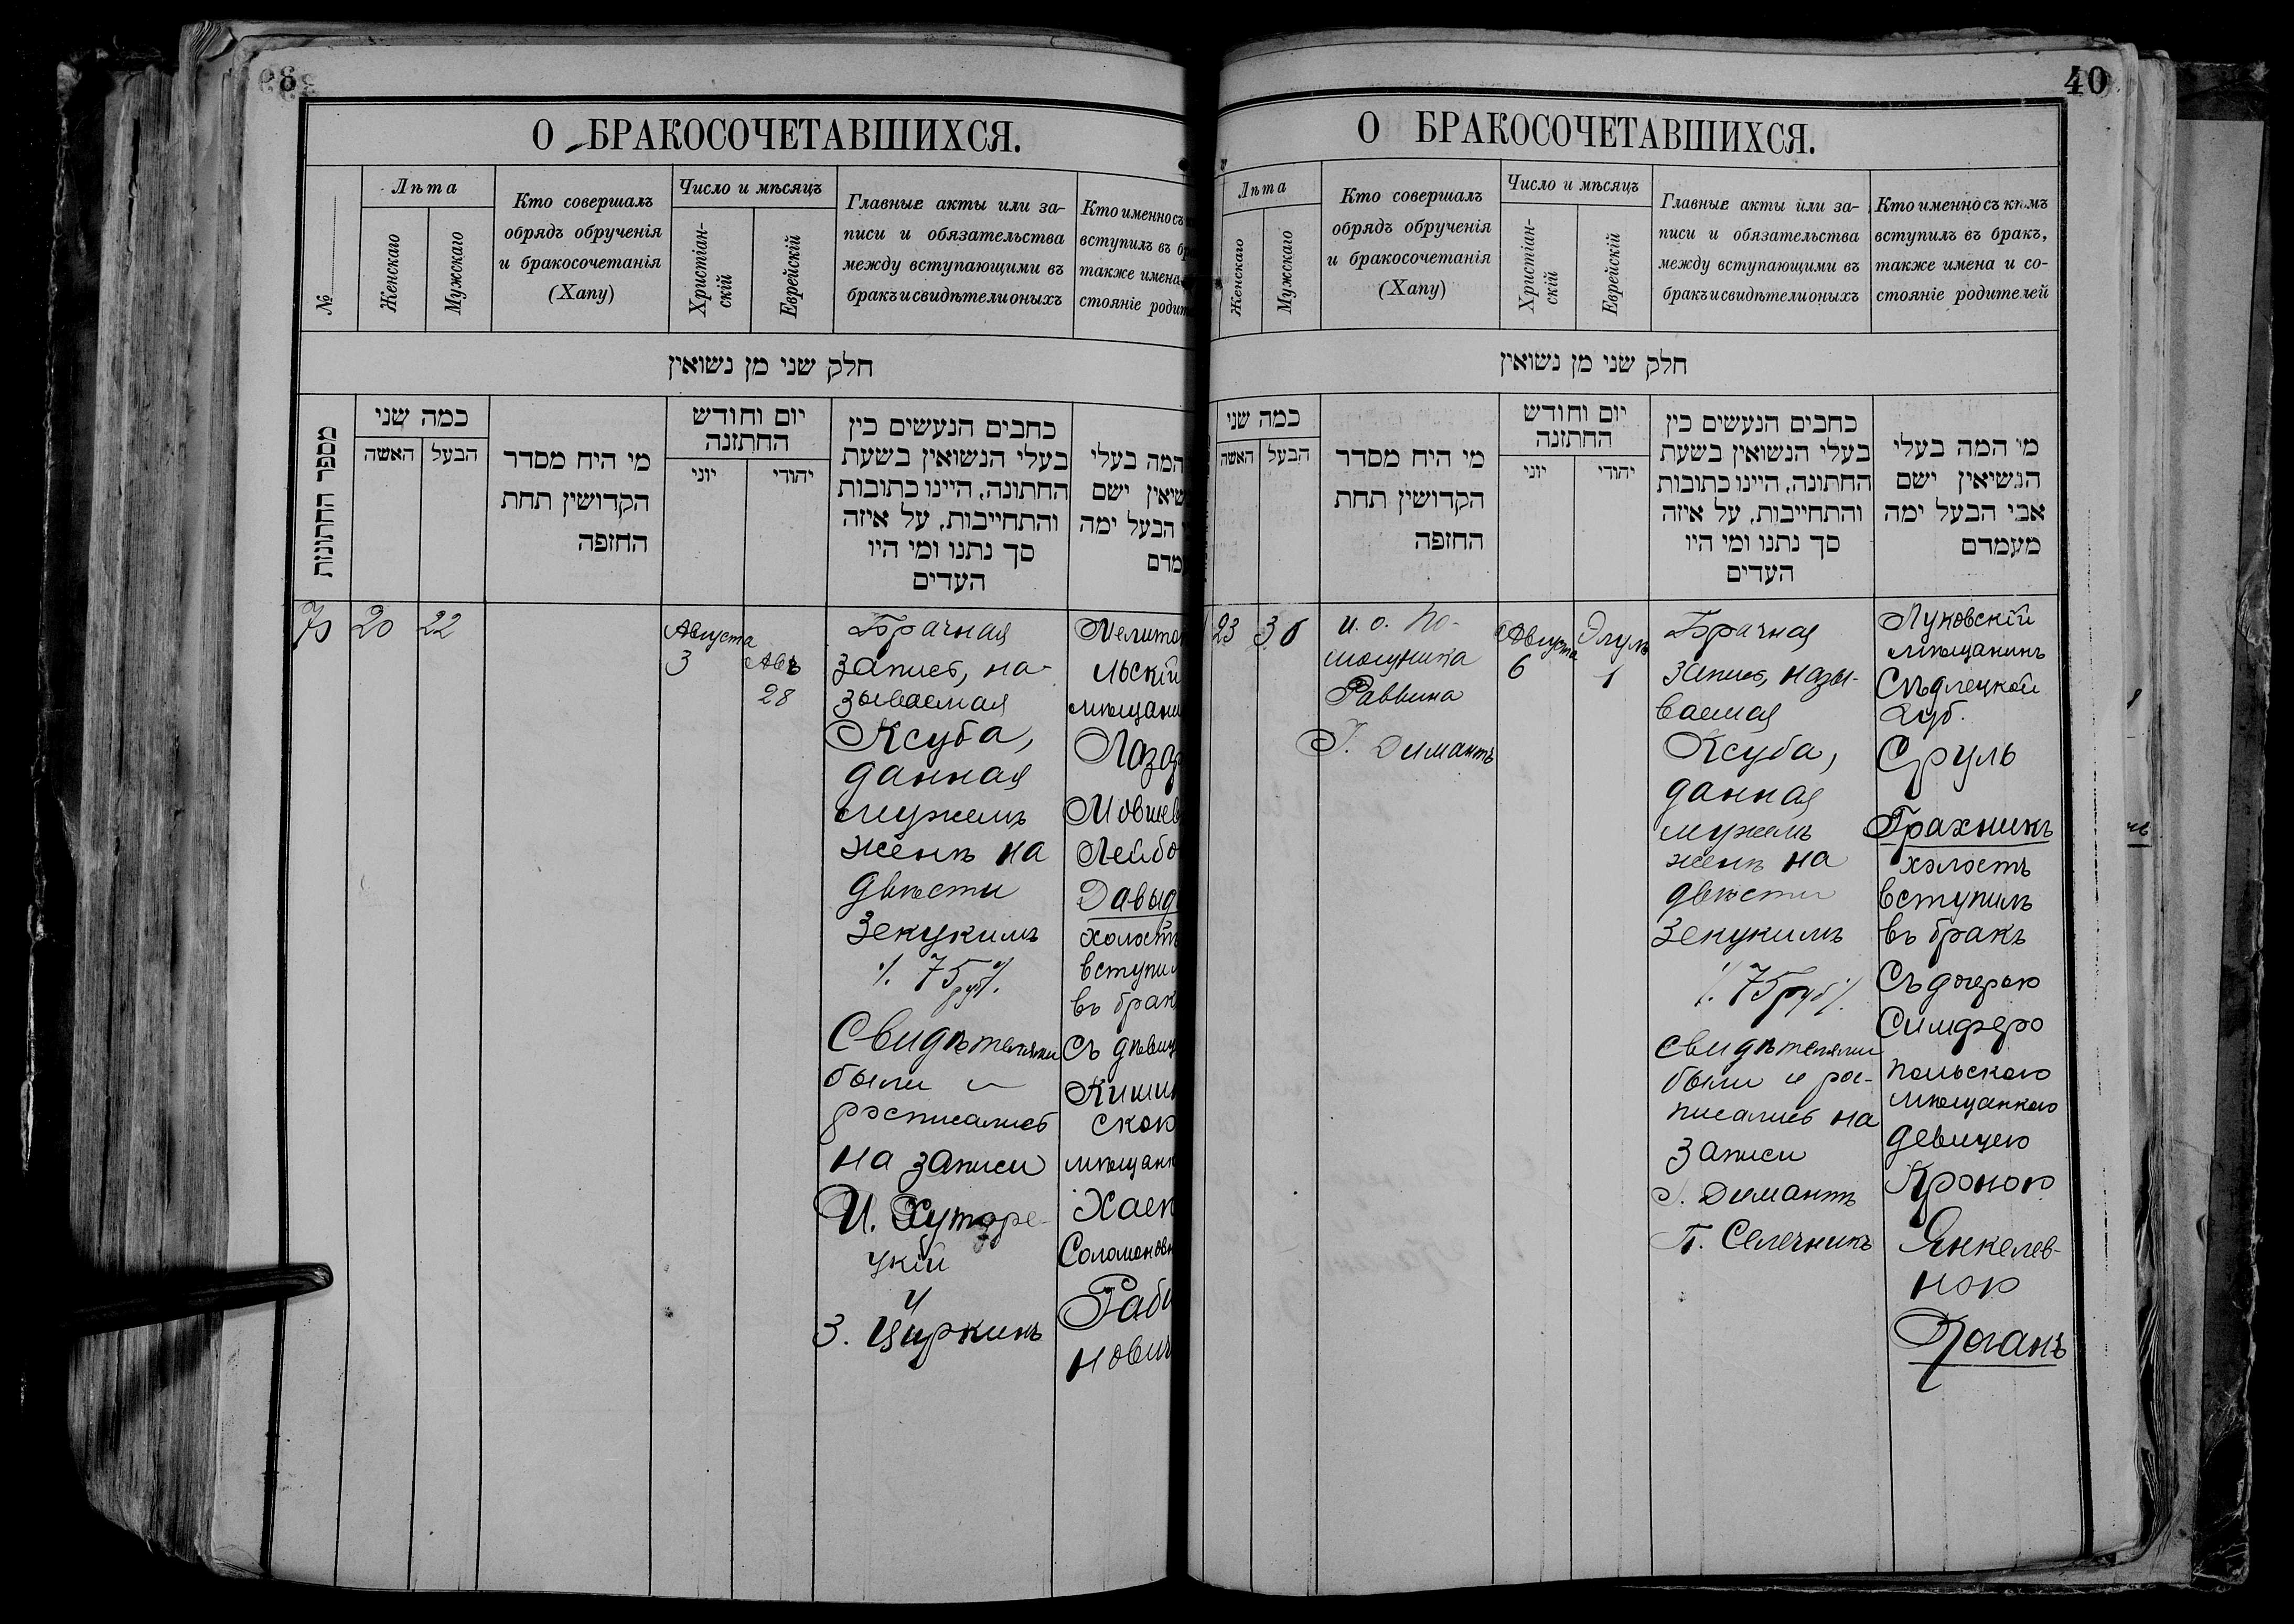 О БРАКОСОЧЕТАВШИХСЯ.
№
Лѣта
Женскаго
Мужскаго
Кто совершалъ
обрядъ обрученія
и бракосочетанія
(Хапу)
Число и мѣсяцъ
Христіан-
скій
Еврейскій
Главные акты или за-
писи и обязательства
между вступающими въ
бракъ и свидѣтели оныхъ
Кто именно съ
вступилъ въ бр
также имена
стояніе родит
חלק שני מן נשואין
מספר החתונות
כמה שני
האשה
הבעל
מי היח מסדר
הקדושין תחת
החזפה
יום וחודש
החתזנה
יוני
יהודי
כחבים הנעשים כין
בעלי הנשואין בשעת
החתונה, היינו כתובות
והתחייבות, על איזה
סך נתנו ומי היו
העדים
המה בעלי
שיאין ישם
הבעל ימה
מדם
20
22
Августа
3
Авъ
28
Брачная
запись, на-
зываемая
Ксуба,
данная
мужемъ
женѣ на
двѣсти
Зекукимъ
٪ 75 руб ٪
Свидѣтелями
были и
росписались
на записи
И. Хуторе-
цкій
и
З. Циркинъ
Мелито
льскій
мѣщани
Лазар
Мовшев
Лейбо
Давыд
холостъ
вступи
въ брак
съ дѣвиц
Кишин
ского
мѣщанк
Хаею
Соломоновн
Раби
нович
40
О БРАКОСОЧЕТАВШИХСЯ.
Лѣта
Женскаго
Мужскаго
Кто совершалъ
обрядъ обрученія
и бракосочетанія
(Хапу)
Число и мѣсяцъ
Христіан-
скій
Еврейскій
Главные акты или за-
писи и обязательства
между вступающими въ
бракъ и свидѣтели оныхъ
Кто именно съ кѣмъ
вступилъ въ бракъ,
также имена и со-
стояніе родителей
חלק שני מן נשואין
כמה שני
האשה
הבעל
מי היח מסדר
הקדושין תחת
החזפה
יום וחודש
החתזנה
יוני
יהודי
כחבים הנעשים כין
בעלי הנשואין בשעת
החתונה, היינו כתובות
והתחייבות, על איזה
סך נתנו ומי היו
העדים
מי המה בעלי
הנשיאין ישם
אבי הבעל ימה
מעמדם
23
и. о. По-
мощника
Раввина
Димантъ
Августа
6
Элулъ
1
Брачная
запись, назы-
ваемая
Ксуба,
данная
мужемъ
женѣ на
двѣсти
Зекукимъ
٪ 75 руб ٪
свидѣтелями
были и рос-
писались на
записи
Димантъ
П. Селечникъ
Луковскій
мѣщанинъ
Сѣдлецкой
Губ.
Сруль
Грахникъ
холостъ
вступилъ
въ бракъ
съ дочерью
Симферо
польского
мѣщанкою
девицею
Кроною
Янкелев-
ною
Коганъ